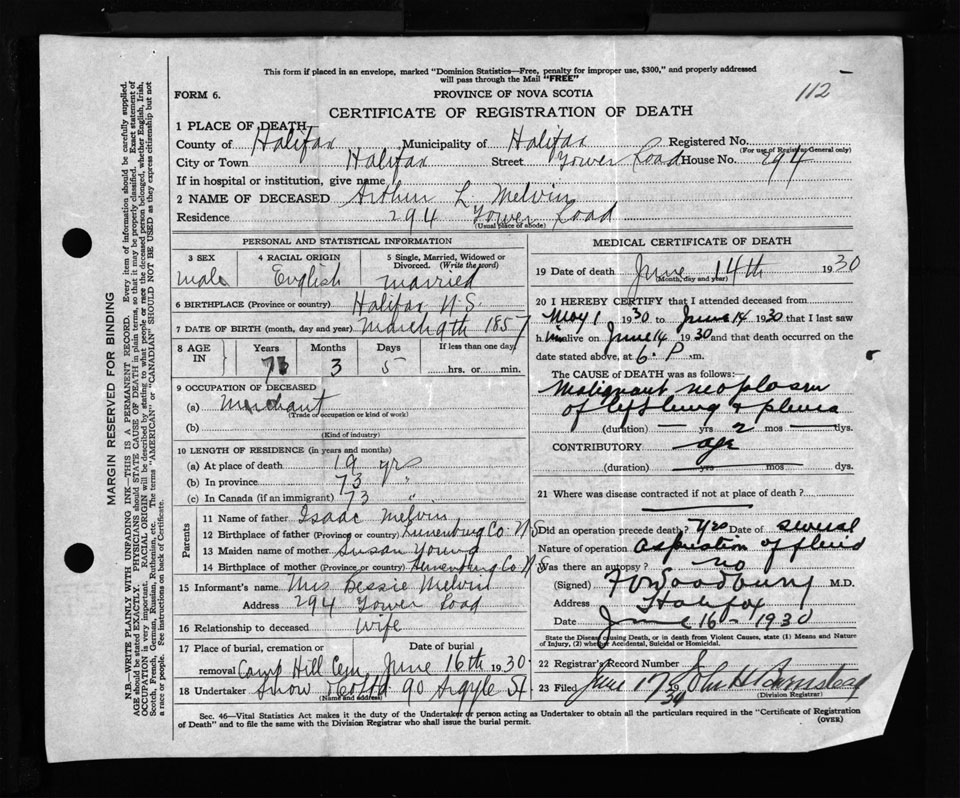 This form if placed in an envelope, marked "Dominion Statistics—Free, penalty for improper use, $300," and properly addressed
will pass through the Mail "FREE"
FORM 6.
PROVINCE OF NOVA SCOTIA
112
CERTIFICATE OF REGISTRATION OF DEATH
1 PLACE OF DEATH
County of Halifax Municipality of Halifax Registered No.
(For use of Registrar General only)
City or Town Halifax Street Tower Road House No. 294
If in hospital or institution, give name
2 NAME OF DECEASED Arthur L Melvin
Residence 294 Tower Road
(Usual place of abode)
PERSONAL AND STATISTICAL INFORMATION
3 SEX 4 RACIAL ORIGIN 5 Single, Married, Widowed or
Divorced. (Write the word)
male English married
6 BIRTHPLACE (Province or country) Halifax N.S.
7 DATE OF BIRTH (month, day and year) March 9th 1857
8 AGE IN Years Months Days If less than one day,
73 3 5 hrs. or min.
9 OCCUPATION OF DECEASED
(a) Merchant
(Trade or occupation or kind of work)
(b)
(Kind of industry)
10 LENGTH OF RESIDENCE (in years and months)
(a) At place of death 19 yrs
(b) In province 73 "
(c) In Canada (if an immigrant) 73 "
Parents
11 Name of father Isaac Melvin
12 Birthplace of father (Province or country) Lunenburg Co N S
13 Maiden name of mother Susan Young
14 Birthplace of mother (Province or country) Lunenburg Co N S
15 Informant's name Mrs Bessie Melvin
Address 294 Tower Road
16 Relationship to deceased wife
17 Place of burial, cremation or Date of burial
removal Camp Hill Cem June 16th 1930
18 Undertaker Snow & Co Ltd 90 Argyle St
(Name and address)
MEDICAL CERTIFICATE OF DEATH
19 Date of death June 14th 1930
(Month, day and year)
20 I HEREBY CERTIFY that I attended deceased from
May 1 1930 to June 14 1930 that I last saw
him alive on June 14 1930 and that death occurred on the
date stated above, at 6. P. m.
The CAUSE of DEATH was as follows:
Malignant neoplasm
of left lung & pleura
(duration) — yrs 2 mos — dys.
CONTRIBUTORY age
(duration) yrs mos dys.
21 Where was disease contracted if not at place of death?
Did an operation precede death? Yes Date of several
Nature of operation Aspiration of fluid
Was there an autopsy? no
(Signed) F Woodbury M.D.
Address Halifax
Date June 16 - 1930
State the Disease causing Death, or in death from Violent Causes, state (1) Means and Nature
of Injury, (2) whether Accidental, Suicidal or Homicidal.
22 Registrar's Record Number
23 Filed June 17 30 John H Barnstead
(Division Registrar)
Sec. 46—Vital Statistics Act makes it the duty of the Undertaker or person acting as Undertaker to obtain all the particulars required in the "Certificate of Registration
of Death" and to file the same with the Division Registrar who shall issue the burial permit. (OVER)
MARGIN RESERVED FOR BINDING
N.B.—WRITE PLAINLY WITH UNFADING INK—THIS IS A PERMANENT RECORD. Every item of information should be carefully supplied.
AGE should be stated EXACTLY. PHYSICIANS should STATE CAUSE OF DEATH in plain terms, so that it may be properly classified. Exact statement of
OCCUPATION is very important. RACIAL ORIGIN will be described by stating to what people or race the deceased person belonged, whether English, Irish,
Scotch, French, German, Russian, Ruthenian, etc. The terms "AMERICAN" or "CANADIAN" SHOULD NOT BE USED as they express citizenship but not
a race or people. See instructions on back of Certificate.